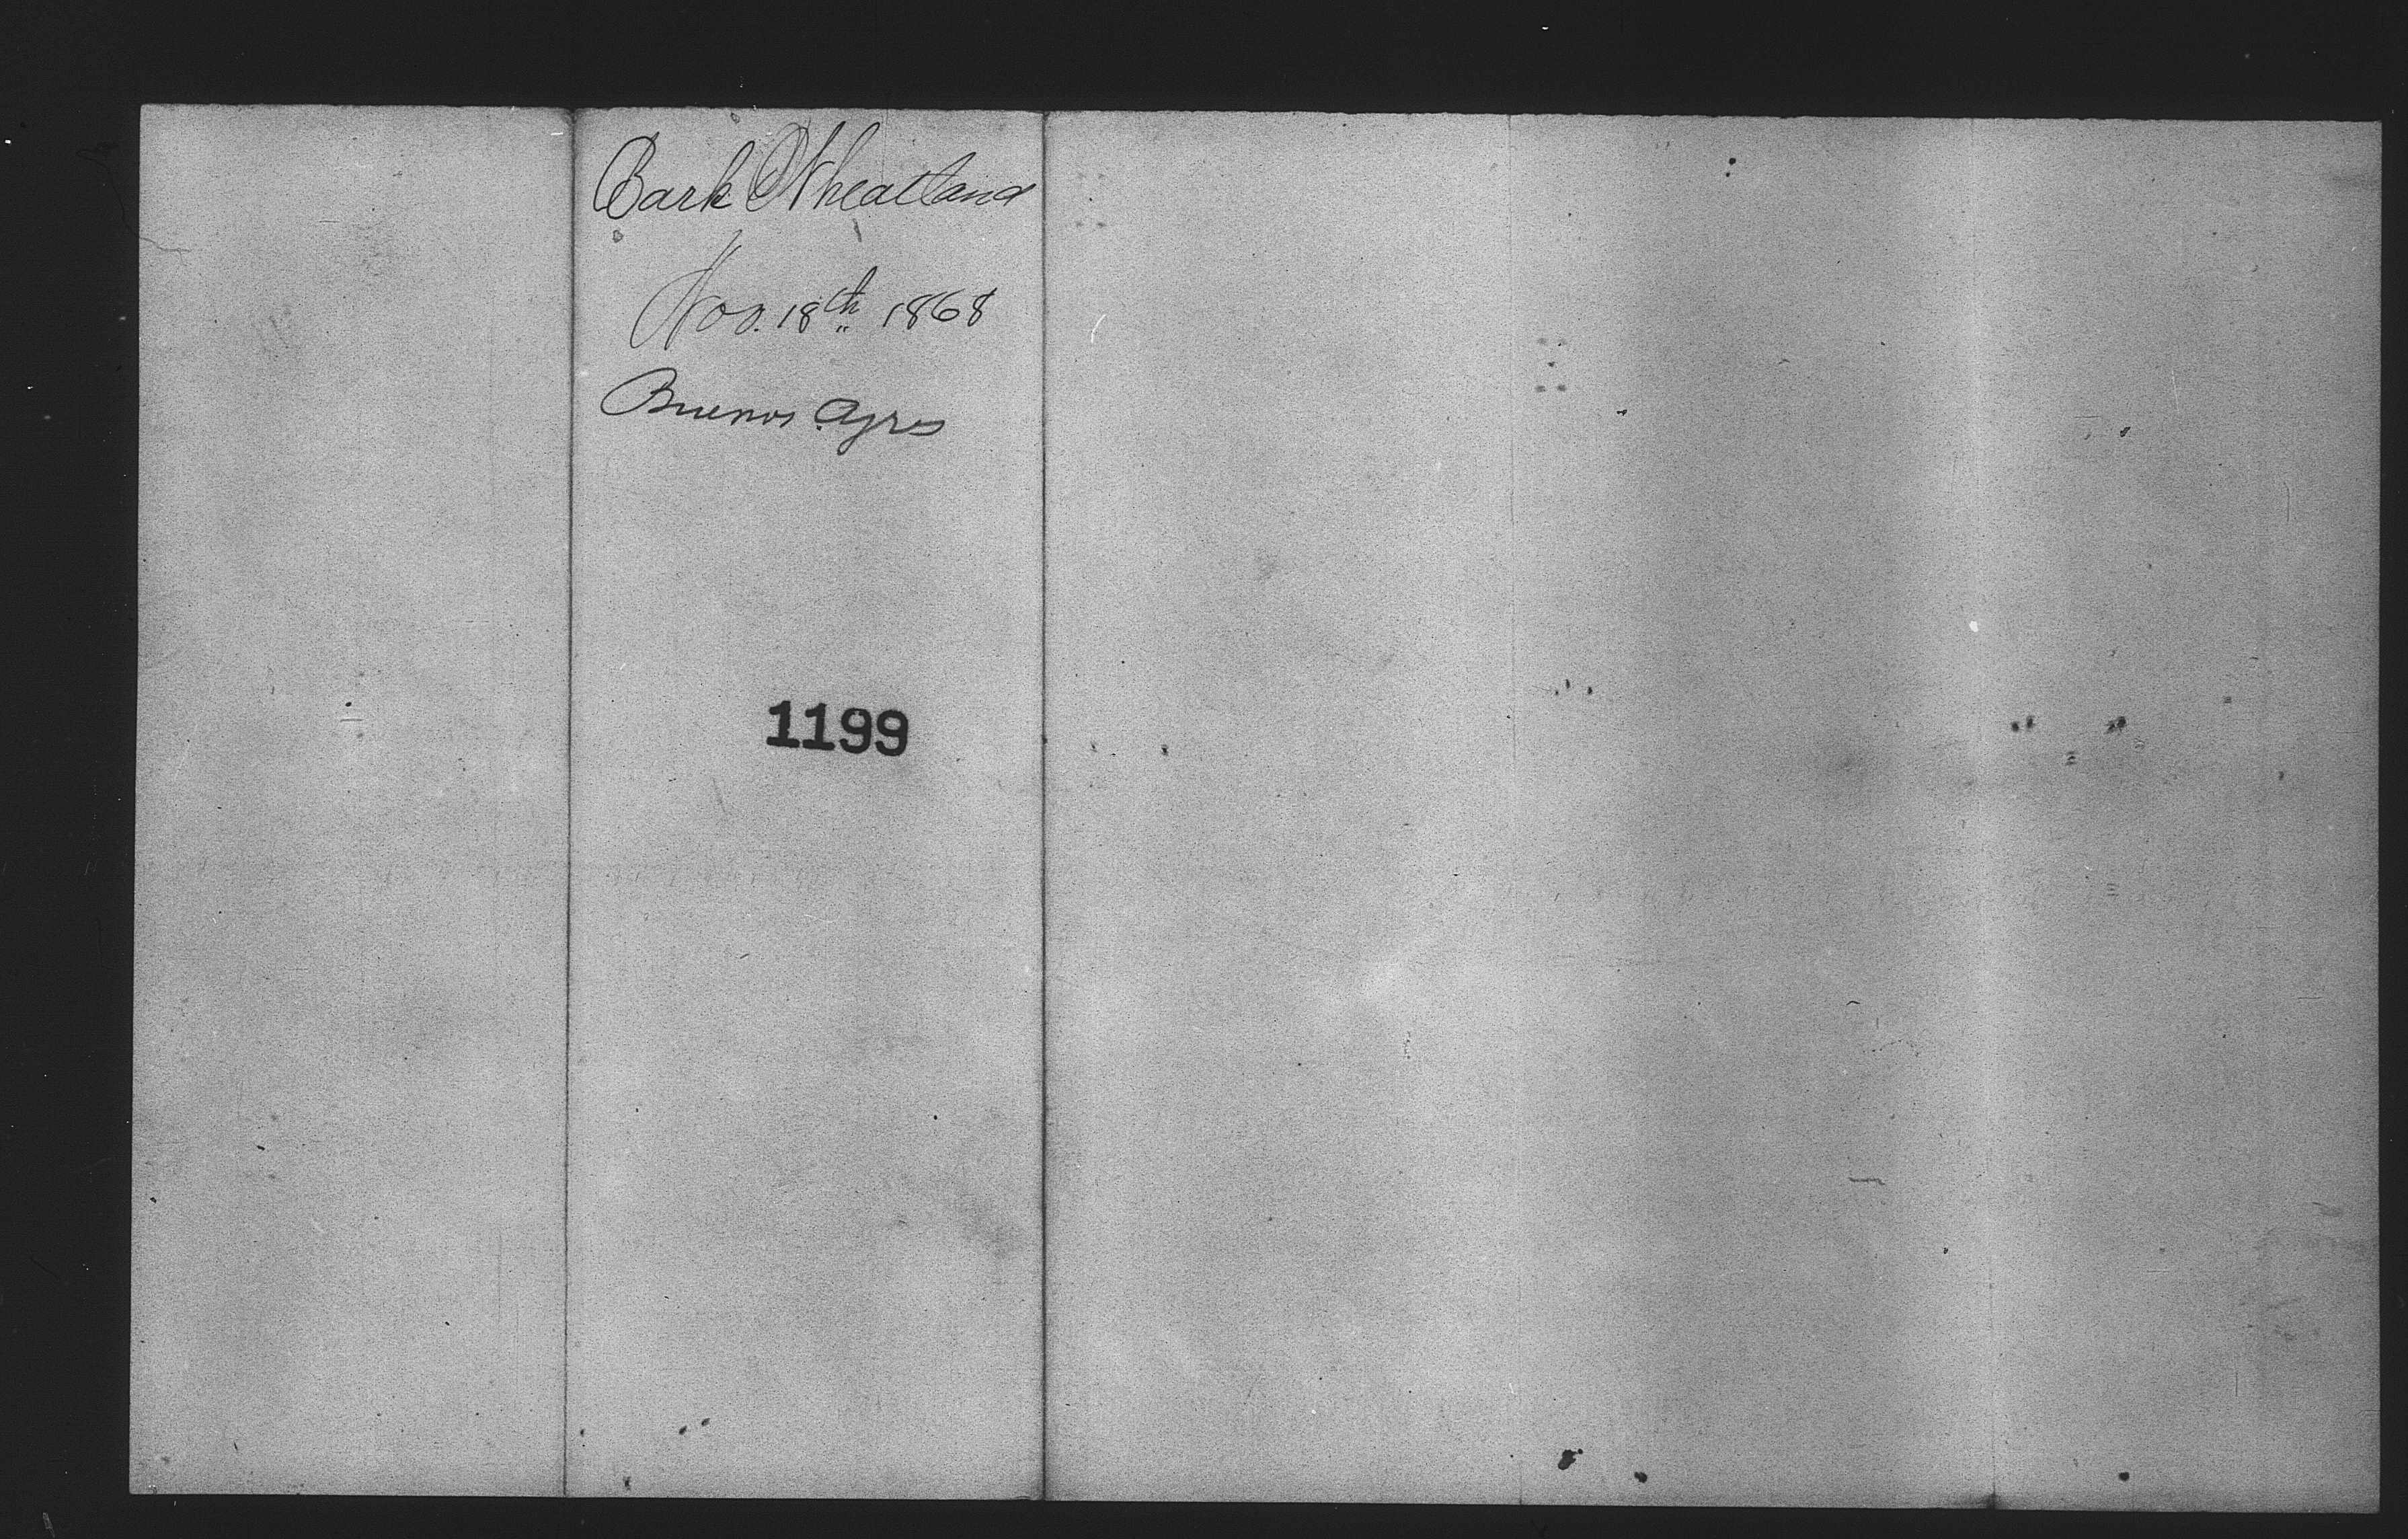 Bark Wheatland
Nov. 18th 1868
Buenos Ayres
1199